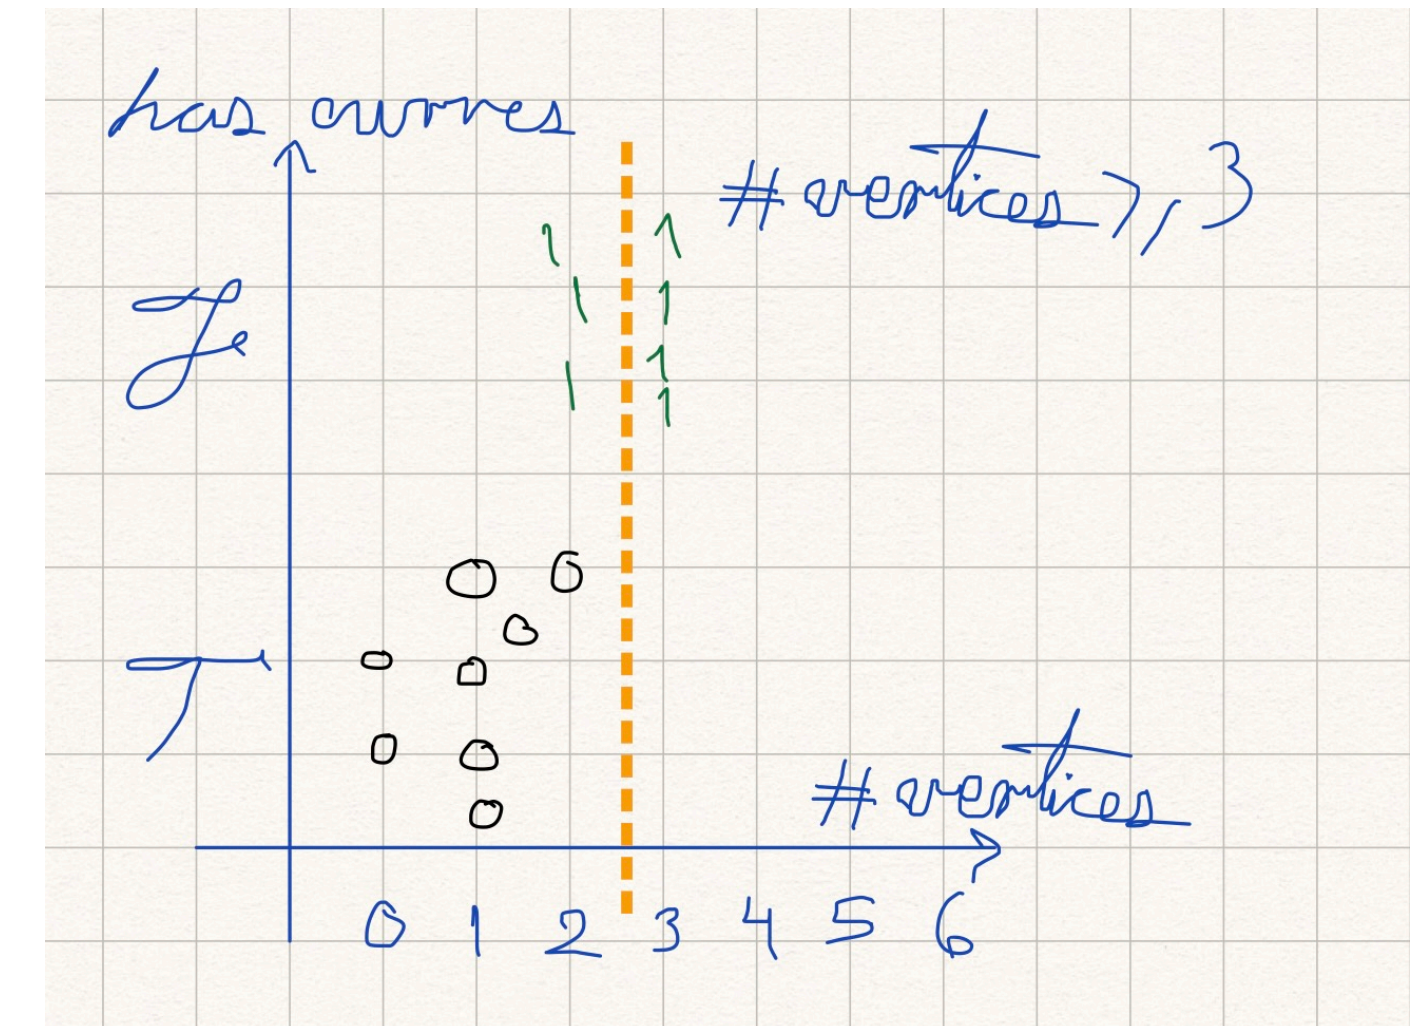 has curves
# vertices ≥ 3
1 1
1 1
F
1 1
1
0 0
0
T 0 0
0 0
# vertices
0
0 1 2 3 4 5 6